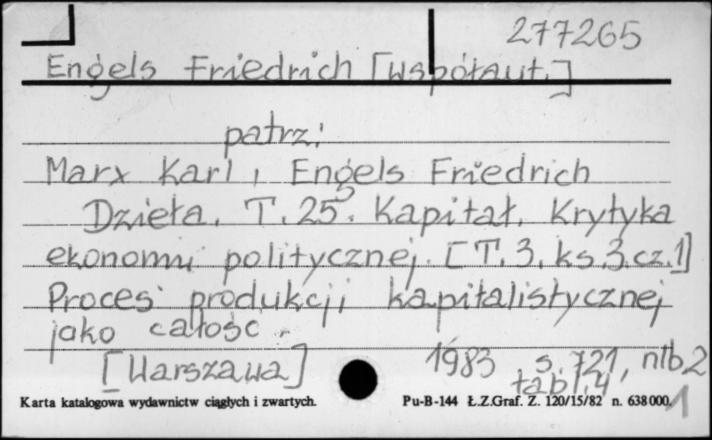 277265
Engels Friedrich [współaut.]
patrz:
Marx Karl, Engels Friedrich
Dzieła. T. 25. Kapitał. Krytyka
ekonomii politycznej. [T. 3, ks. 3, cz. 1]
Proces produkcji kapitalistycznej
jako całość.
[Warszawa] 1983 s. 721, nlb 2
tabl. 4
Karta katalogowa wydawnictw ciągłych i zwartych. Pu-B-144 Ł.Z.Graf. Z. 120/15/82 n. 638 000. 1